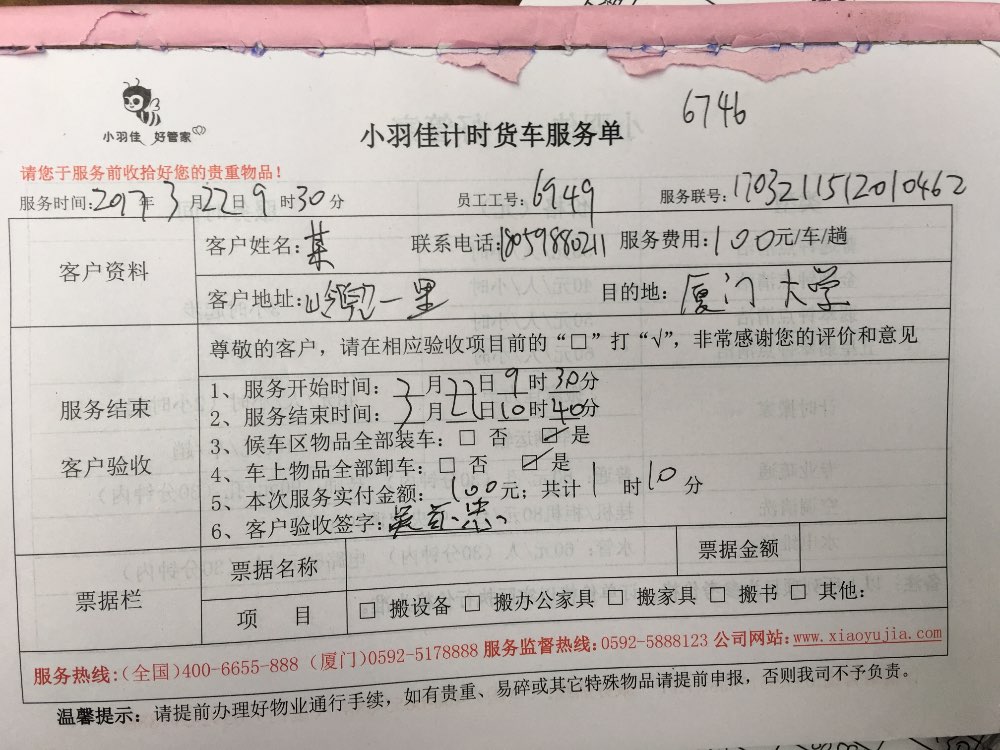 6746
小羽佳 好管家
小羽佳计时货车服务单
请您于服务前收拾好您的贵重物品！
服务时间:2017年3月22日9时30分 员工工号:6949 服务联号:1703211512010462
客户资料
客户姓名:某 联系电话:18059880211 服务费用:100元/车/趟
客户地址:岭兜一里 目的地:厦门大学
服务结束
客户验收
尊敬的客户，请在相应验收项目前的“□”打“√”，非常感谢您的评价和意见
1、服务开始时间：3月22日9时30分
2、服务结束时间：3月22日10时40分
3、候车区物品全部装车：□ 否 ☑ 是
4、车上物品全部卸车：□ 否 ☑ 是
5、本次服务实付金额：100元；共计1时10分
6、客户验收签字:
票据栏
票据名称 票据金额
项 目 □ 搬设备 □ 搬办公家具 □ 搬家具 □ 搬书 □ 其他：
服务热线:(全国)400-6655-888 (厦门)0592-5178888 服务监督热线:0592-5888123 公司网站:www.xiaoyujia.com
温馨提示：请提前办理好物业通行手续，如有贵重、易碎或其它特殊物品请提前申报，否则我司不予负责。